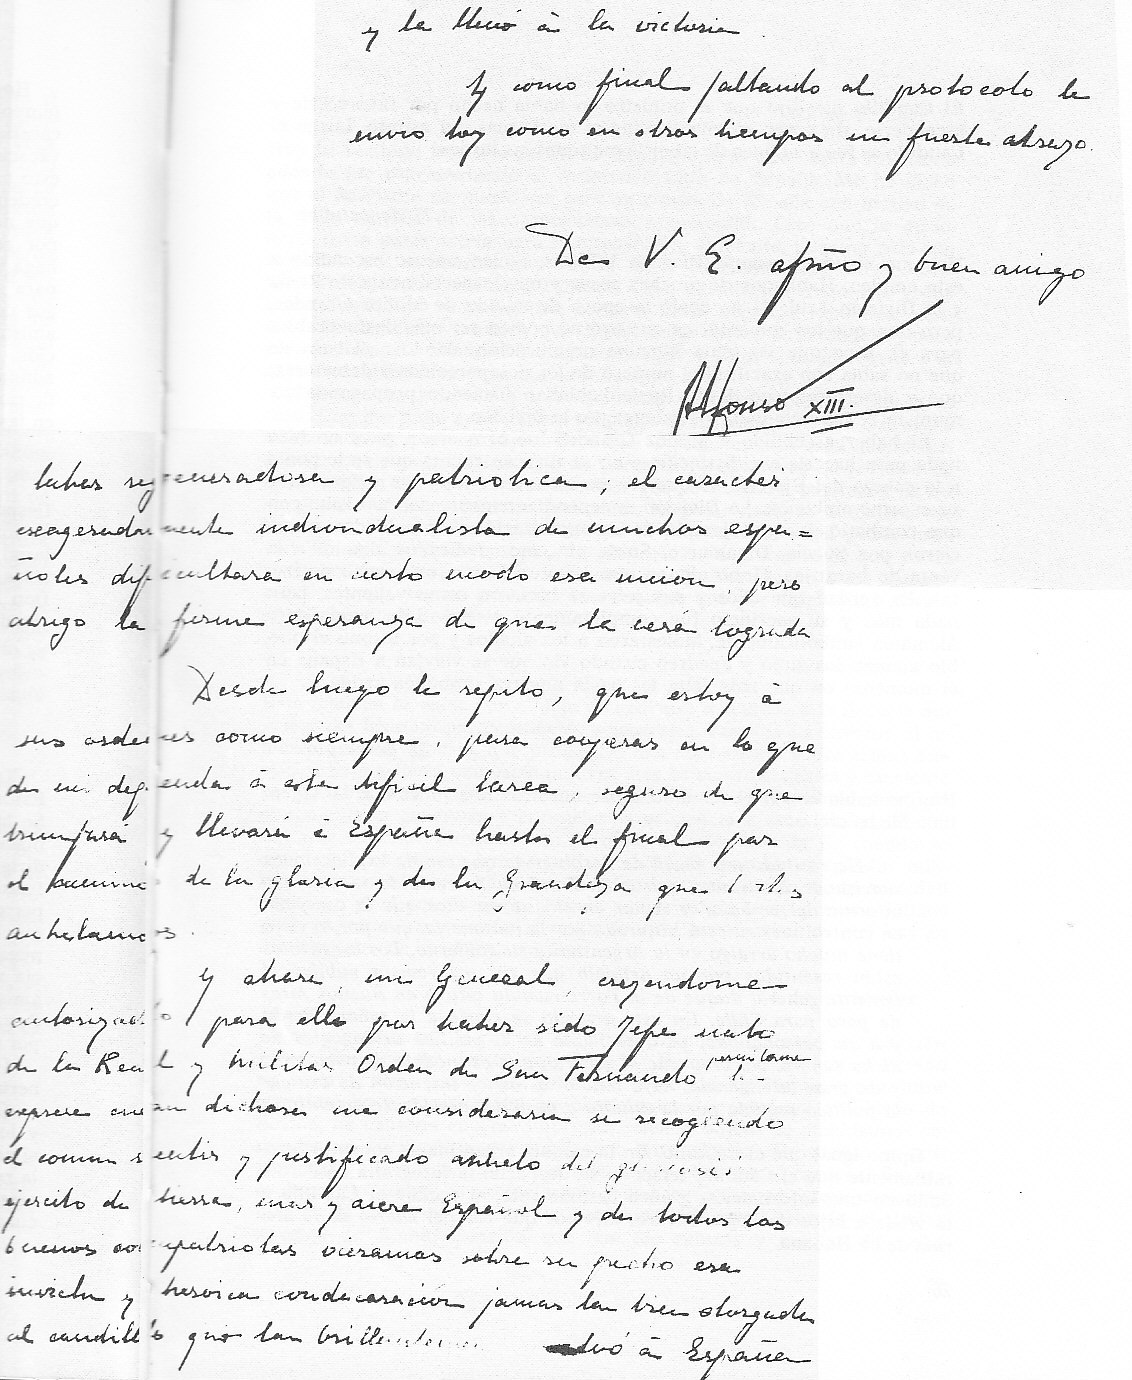 y la llevó á la victoria.
Y como final faltando al protocolo le
envio hoy como en otros tiempos un fuerte abrazo.
De V. E. afmo y buen amigo
Alfonso XIII.
labor regeneradora y patriotica; el caracter
exageradamente individualista de muchos espa=
ñoles dificultara en cierto modo esa union, pero
abrigo la firme esperanza de que la verá lograda
Desde luego le repito, que estoy á
sus ordenes como siempre, para cooperar en lo que
de mi dependa á esta dificil tarea, seguro de que
triunfará y llevará á España hasta el final por
el camino de la gloria y de la Grandeza que todos
anhelamos.
Y ahora, mi General, creyendome
autorizado para ello por haber sido Jefe nato
de la Real y Militar Orden de San Fernando permitame
exprese cuan dichoso me consideraria si recogiendo
el comun sentir y justificado anhelo del glorioso
ejercito de tierra, mar y aire Español y de todos los
buenos compatriotas vieramos sobre su pecho esa
invicta y heroica condecoración jamas tan bien otorgada
al caudillo que tan brillantemente á España